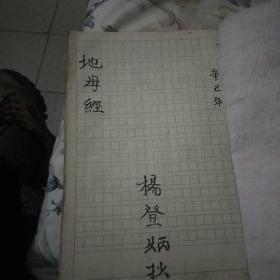 辛巳年
地母經
楊登炳抄